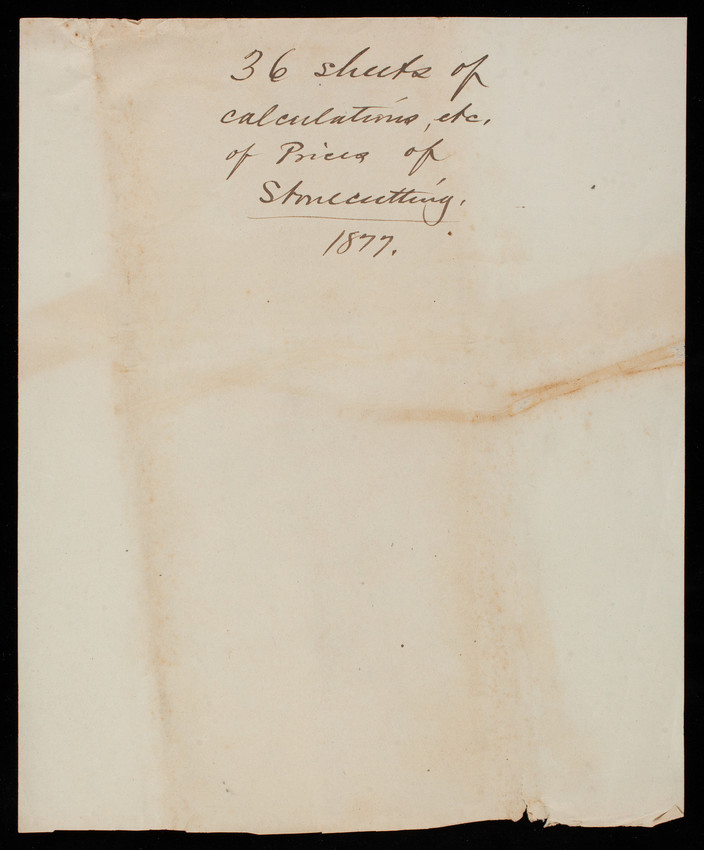 36 sheets of
calculations, etc.
of Prices of
Stonecutting.
1877.